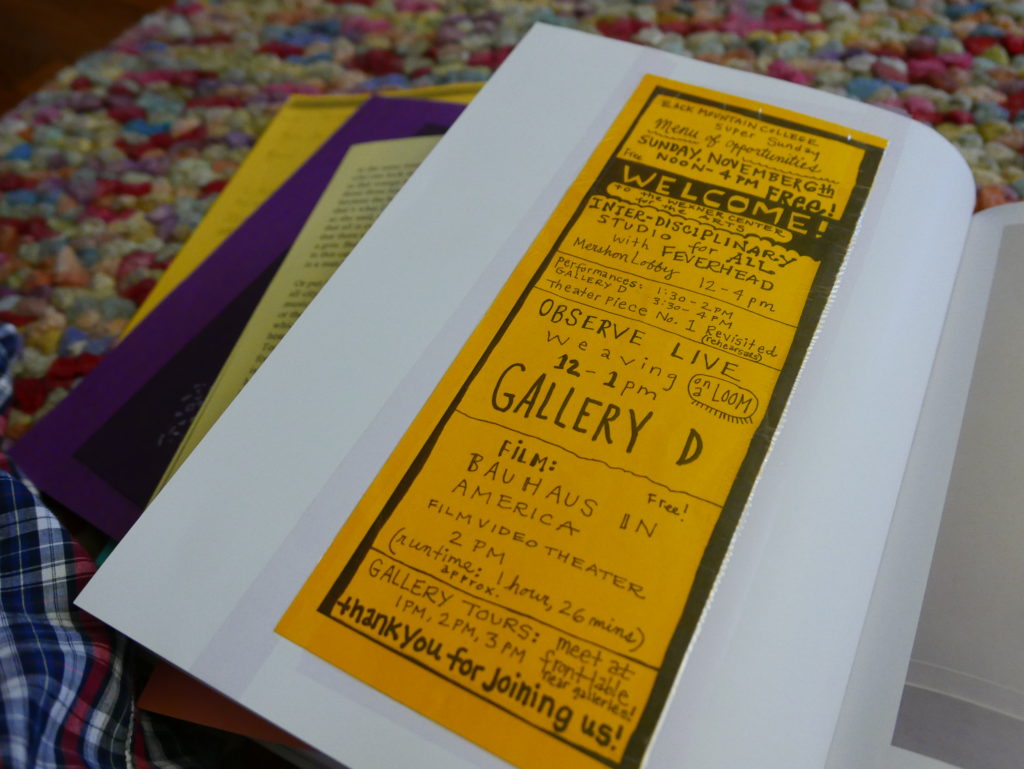 BLACK MOUNTAIN COLLEGE
Super Sunday
Menu of Opportunities
SUNDAY, NOVEMBER 6th
Free NOON-4PM FREE!
WELCOME!
TO THE WEXNER CENTER
for the ARTS
INTER-DISCIPLINARY
STUDIO for ALL
with FEVERHEAD
Mershon Lobby 12-4pm
Performances: 1:30-2PM
GALLERY D 3:30-4PM
Theater Piece No. 1 Revisited
(rehearsals)
OBSERVE LIVE
Weaving on a LOOM
12-1pm
GALLERY D
FILM: Free!
BAUHAUS IN
AMERICA
FILM VIDEO THEATER
2 PM
(runtime: 1 hour, 26 mins)
approx.
GALLERY TOURS: meet at
1PM, 2PM, 3PM front table
near galleries!
thank you for joining us!